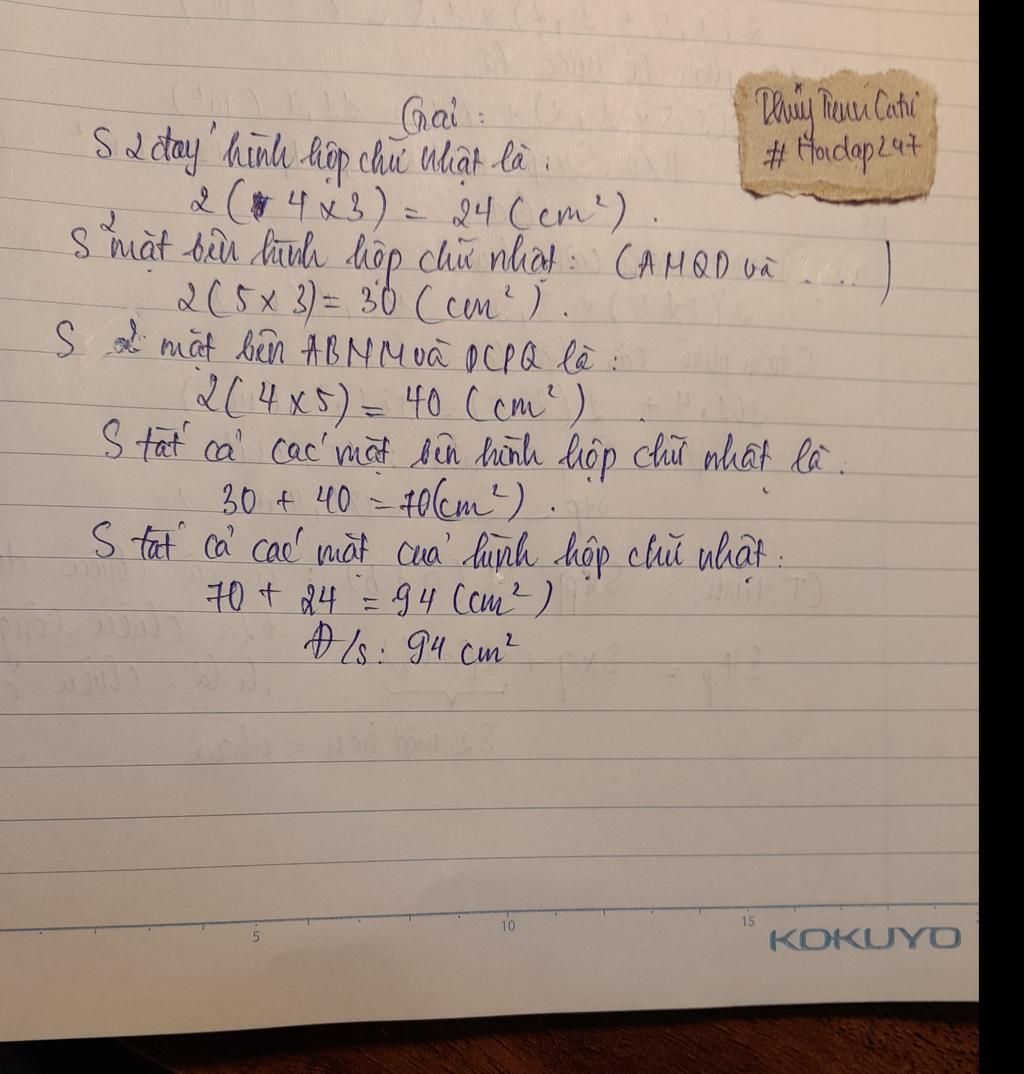 Giải:
S 2 đáy hình hộp chữ nhật là:
2 ( 4 x 3 ) = 24 ( cm² ) .
S 2 mặt bên hình hộp chữ nhật: ( AMQD và . . . . )
2 ( 5 x 3 ) = 30 ( cm² ) .
S 2 mặt bên ABNM và DCPQ là :
2 ( 4 x 5 ) = 40 ( cm² )
S tất cả các mặt bên hình hộp chữ nhật là :
30 + 40 = 70 (cm² ) .
S tất cả các mặt của hình hộp chữ nhật :
70 + 24 = 94 (cm² )
Đ/s : 94 cm²
Thủy
# Hoidap247
5 10 15
KOKUYO